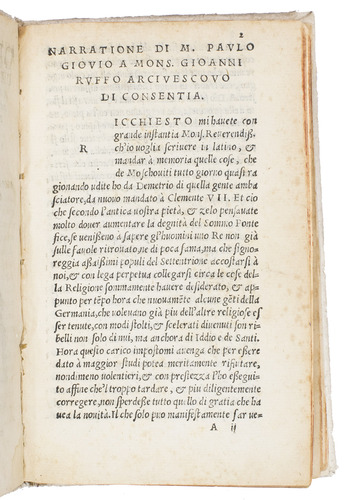 2
NARRATIONE DI M. PAVLO
GIOVIO A MONS. GIOANNI
RVFFO ARCIVESCOVO
DI CONSENTIA.
RICCHIESTO mi havete con
grande instantia Mons. Reverendiss.
ch'io voglia scrivere in latino, &
mandar à memoria quelle cose, che
de Moschoviti tutto giorno quasi ra
gionando udite ho da Demetrio di quella gente amba
sciatore, da nuovo mandato à Clemente VII. Et ciò
che secondo l'antica vostra pietà, & zelo pensavate
molto dover aumentare la degnità del Sommo Ponte
fice, se venisseno à sapere gl'huomini uno Re non già
sulle favole ritrovato, ne di poca fama, ma che signo-
reggia assaissimi populi del Settentrione accostarsi à
noi, & con lega perpetua collegarsi circa le cose del-
la Religione sommamente havere desiderato, & ap-
punto per tēpo hora che nuovamēte alcune gēti della
Germania, che volevano già piu dell'altre religiose es
ser tenute, con modi stolti, & scelerati divenuti son ri-
belli non solo di nui, ma anchora di Iddio e de Santi.
Hora questo carico impostomi avenga che per essere
dato à maggior studi potea meritamente rifiutare,
nondimeno volentieri, & con prestezza l'ho essegui-
to affine che'l troppo tardare, & piu diligentemente
corregere, non sperdesse tutto quello di gratia che ha
vea la novità. Il che solo pno manifestamente far ve-
A ij